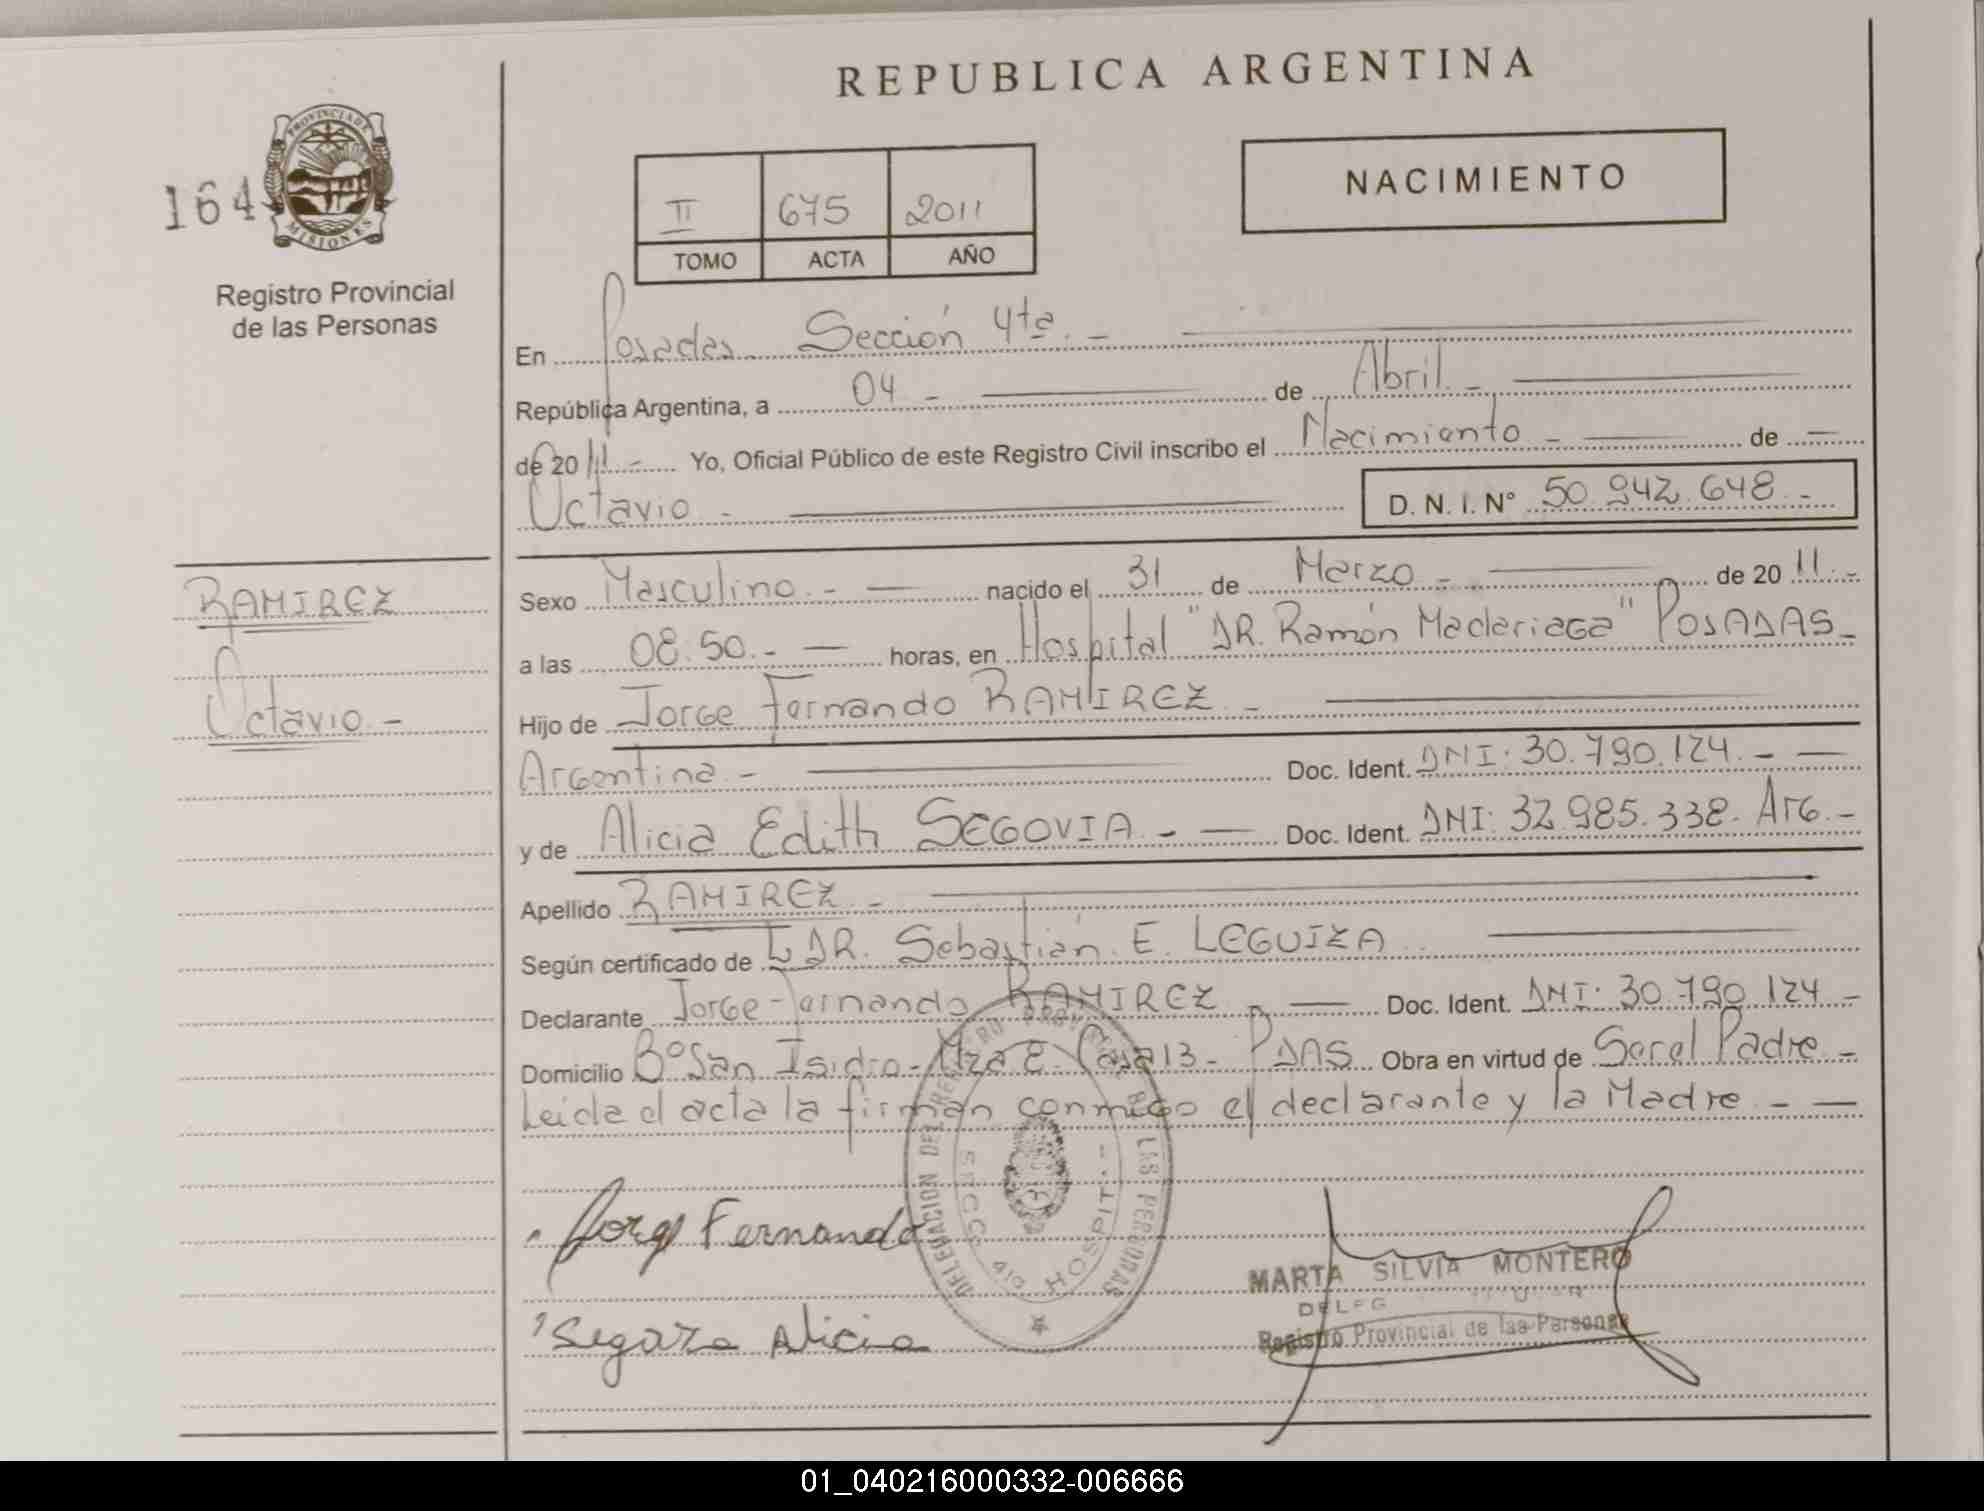 REPUBLICA ARGENTINA
PROVINCIA DE
MISIONES
164
Registro Provincial
de las Personas
II 675 2011
TOMO ACTA AÑO
NACIMIENTO
En Posadas Sección 4ta. -
República Argentina, a 04 - de Abril. -
de 2011 - Yo, Oficial Público de este Registro Civil inscribo el Nacimiento - de -
Octavio - D. N. I. N° 50.942.648. -
RAMIREZ
Octavio -
Sexo Masculino. - nacido el 31 de Marzo - de 2011. -
a las 08:50. - horas, en Hospital "DR. Ramón Madariaga" POSADAS -
Hijo de Jorge Fernando RAMIREZ -
Argentina - Doc. Ident. DNI: 30.790.124. -
y de Alicia Edith SEGOVIA - Doc. Ident. DNI: 32.985.338. Arg. -
Apellido RAMIREZ -
Según certificado de DR. Sebastián E. LEGUIZA
Declarante Jorge Fernando RAMIREZ - Doc. Ident. DNI: 30.790.124 -
Domicilio B° San Isidro - Mza E. Casa 13 - PDAS Obra en virtud de Ser el Padre -
Leida el acta la firman conmigo el declarante y la Madre - -
DELEGACION DEL REGISTRO PROVINCIAL DE LAS PERSONAS
HOSPIT. -
Jorge Fernando
Alicia
MARTA SILVIA MONTERO
Registro Provincial de las Personas
01_040216000332-006666